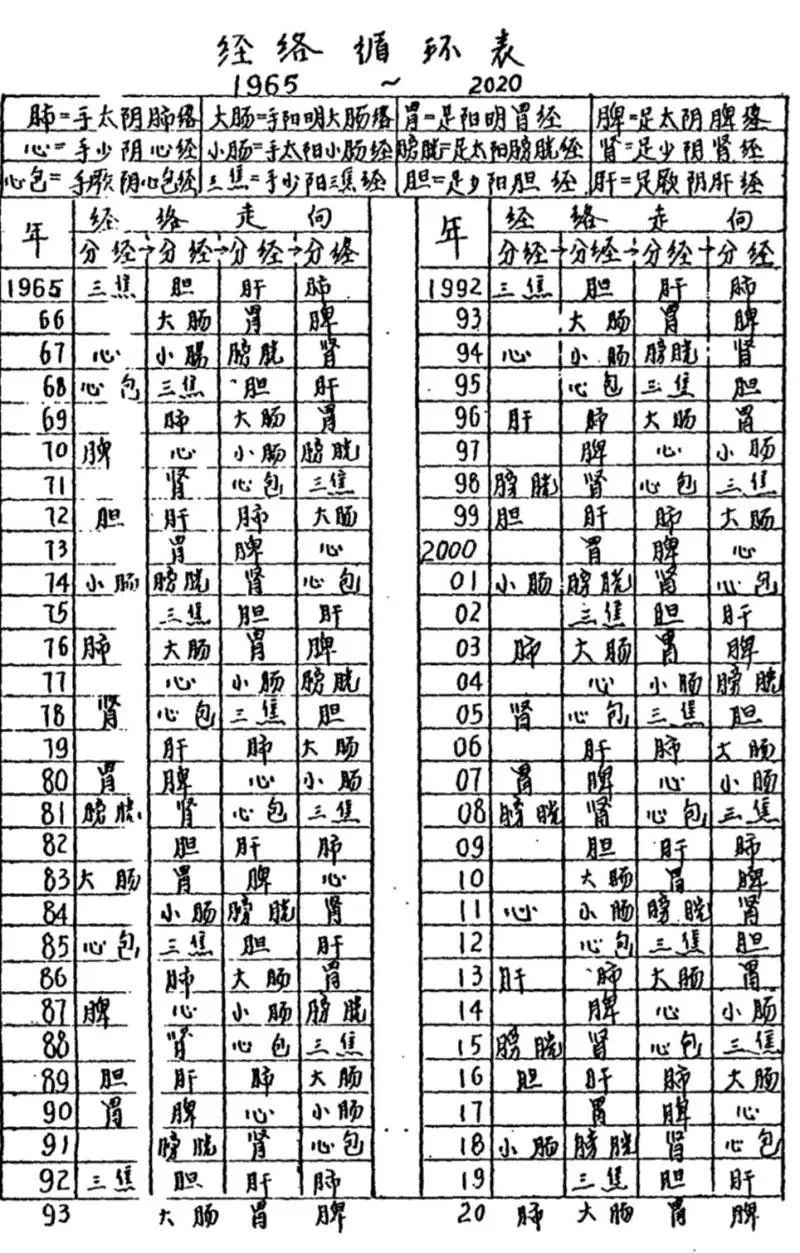 经络循环表
1965 ~ 2020
肺=手太阴肺络 大肠=手阳明大肠络 胃=足阳明胃经 脾=足太阴脾络
心=手少阴心经 小肠=手太阳小肠经 膀胱=足太阳膀胱经 肾=足少阴肾经
心包=手厥阴心包经 三焦=手少阳三焦经 胆=足少阳胆经 肝=足厥阴肝经
年 经络走向
分经→分经→分经→分络
1965 三焦 胆 肝 肺
66 大肠 胃 脾
67 心 小肠 膀胱 肾
68 心包 三焦 胆 肝
69 肺 大肠 胃
70 脾 心 小肠 膀胱
71 肾 心包 三焦
72 胆 肝 肺 大肠
73 胃 脾 心
74 小肠 膀胱 肾 心包
75 三焦 胆 肝
76 肺 大肠 胃 脾
77 心 小肠 膀胱
78 肾 心包 三焦 胆
79 肝 肺 大肠
80 胃 脾 心 小肠
81 膀胱 肾 心包 三焦
82 胆 肝 肺
83 大肠 胃 脾 心
84 小肠 膀胱 肾
85 心包 三焦 胆 肝
86 肺 大肠 胃
87 脾 心 小肠 膀胱
88 肾 心包 三焦
89 胆 肝 肺 大肠
90 胃 脾 心 小肠
91 膀胱 肾 心包
92 三焦 胆 肝 肺
93 大肠 胃 脾
年 经络走向
分经→分经→分经→分经
1992 三焦 胆 肝 肺
93 大肠 胃 脾
94 心 小肠 膀胱 肾
95 心包 三焦 胆
96 肝 肺 大肠 胃
97 脾 心 小肠
98 膀胱 肾 心包 三焦
99 胆 肝 肺 大肠
2000 胃 脾 心
01 小肠 膀胱 肾 心包
02 三焦 胆 肝
03 肺 大肠 胃 脾
04 心 小肠 膀胱
05 肾 心包 三焦 胆
06 肝 肺 大肠
07 胃 脾 心 小肠
08 膀胱 肾 心包 三焦
09 胆 肝 肺
10 大肠 胃 脾
11 心 小肠 膀胱 肾
12 心包 三焦 胆
13 肝 肺 大肠 胃
14 脾 心 小肠
15 膀胱 肾 心包 三焦
16 胆 肝 肺 大肠
17 胃 脾 心
18 小肠 膀胱 肾 心包
19 三焦 胆 肝
20 肺 大肠 胃 脾